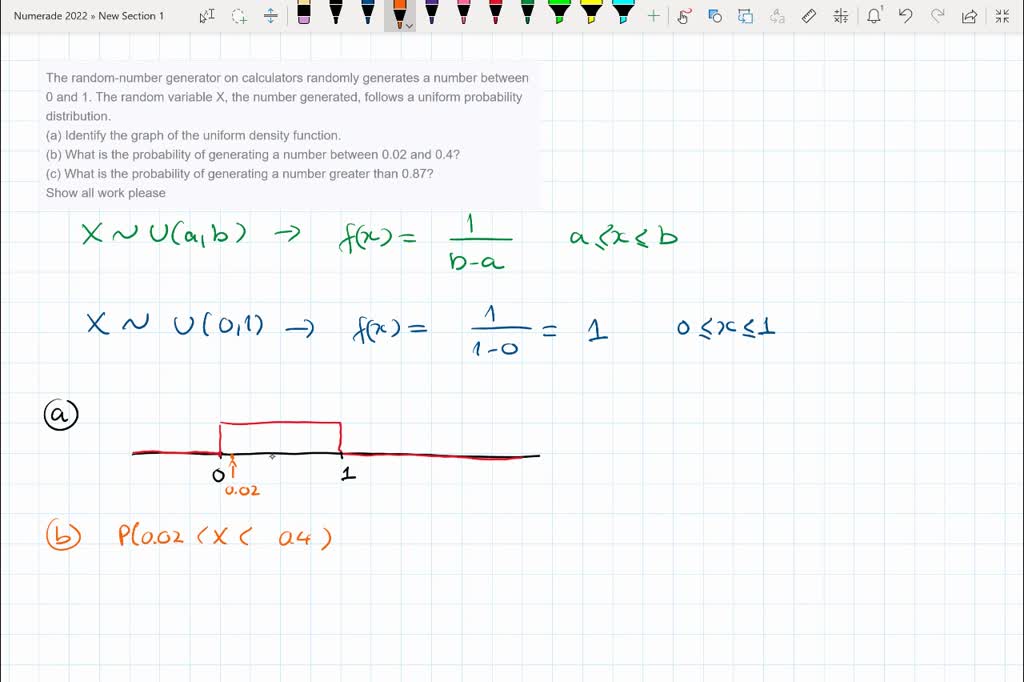 Numerade 2022 » New Section 1
The random-number generator on calculators randomly generates a number between
0 and 1. The random variable X, the number generated, follows a uniform probability
distribution.
(a) Identify the graph of the uniform density function.
(b) What is the probability of generating a number between 0.02 and 0.4?
(c) What is the probability of generating a number greater than 0.87?
Show all work please
X ~ U(a,b) → f(x) = 1/(b-a) a ≤ x ≤ b
X ~ U(0,1) → f(x) = 1/(1-0) = 1 0 ≤ x ≤ 1
(a)
0 1
0.02
(b) P(0.02 < X < 0.4)